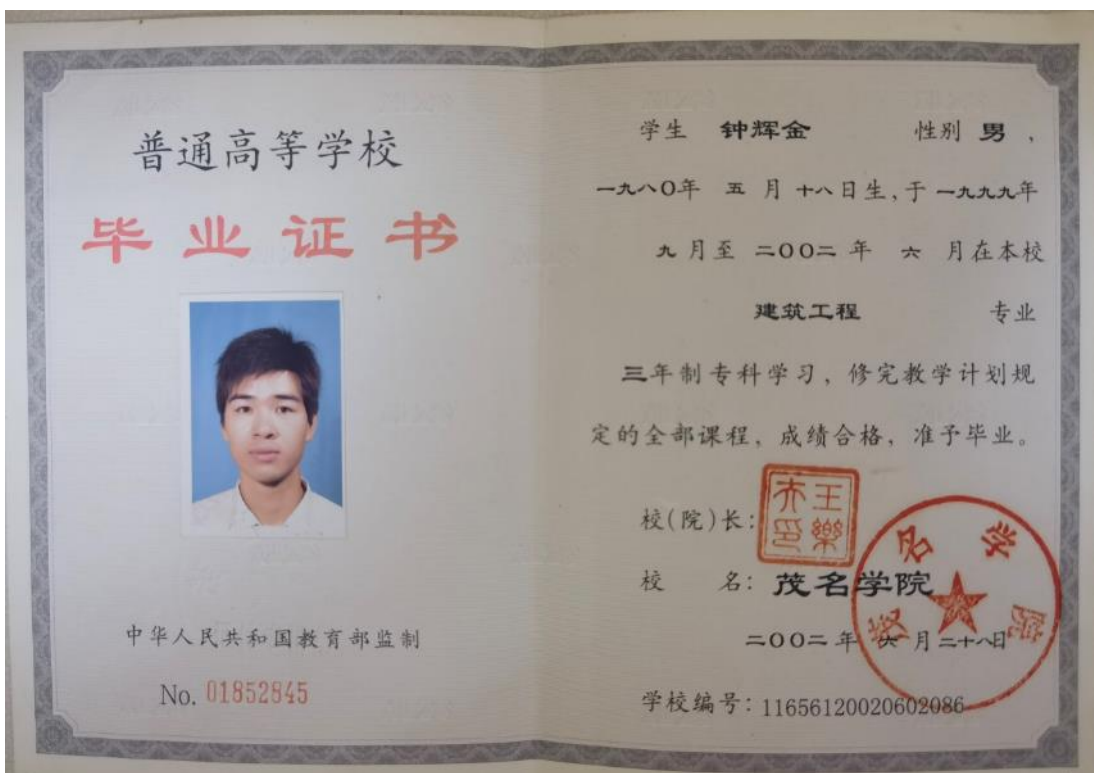 普通高等学校
毕业证书
中华人民共和国教育部监制
No. 01852845
学生 钟辉金 性别 男，
一九八〇年 五 月 十八日生，于 一九九九年
九 月至 二〇〇二 年 六 月在本校
建筑工程 专业
三年制专科学习，修完教学计划规
定的全部课程，成绩合格，准予毕业。
校(院)长：
王乐夫印
校 名：茂名学院
茂名学院
二〇〇二年 六 月二十八日
学校编号：11656120020602086